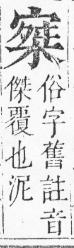 俗字舊註音
傑覆也泥